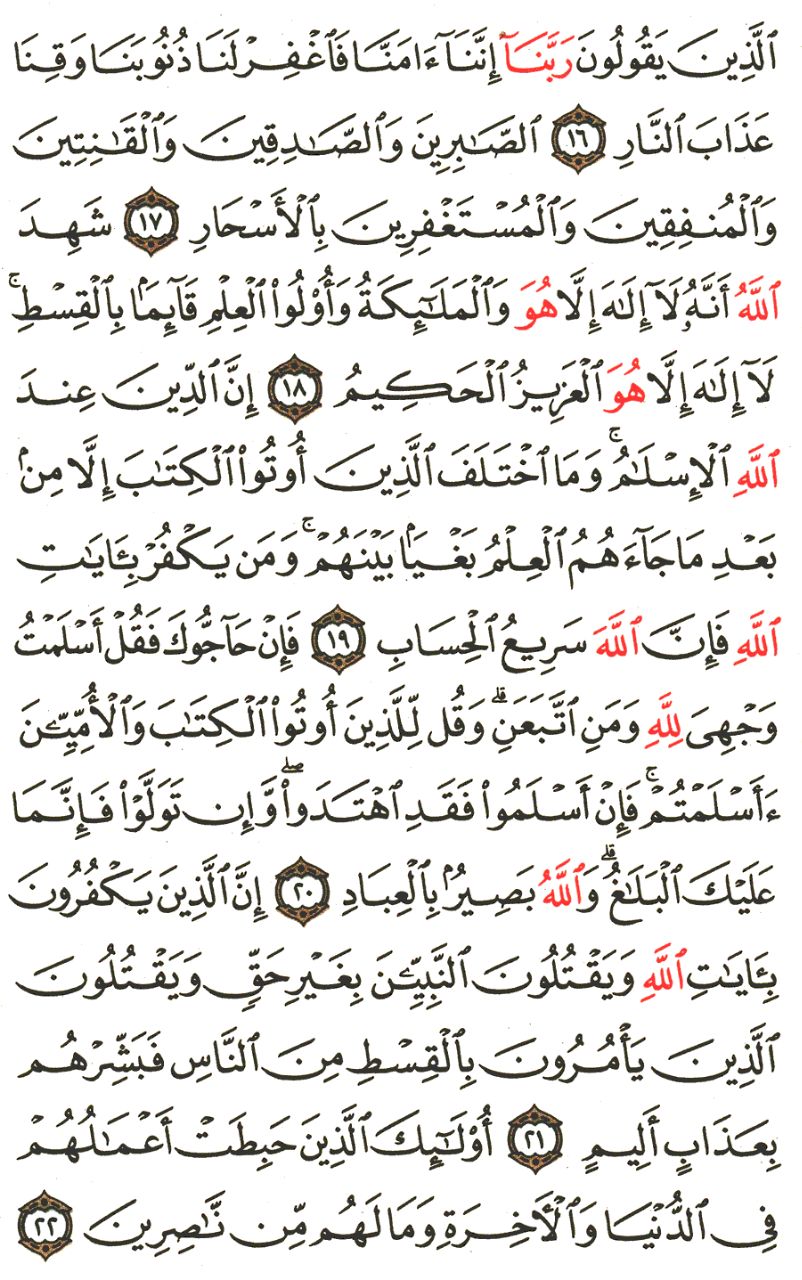 ٱلَّذِينَ يَقُولُونَ رَبَّنَآ إِنَّنَآ ءَامَنَّا فَٱغْفِرْ لَنَا ذُنُوبَنَا وَقِنَا
عَذَابَ ٱلنَّارِ ١٦ ٱلصَّٰبِرِينَ وَٱلصَّٰدِقِينَ وَٱلْقَٰنِتِينَ
وَٱلْمُنفِقِينَ وَٱلْمُسْتَغْفِرِينَ بِٱلْأَسْحَارِ ١٧ شَهِدَ
ٱللَّهُ أَنَّهُۥ لَآ إِلَٰهَ إِلَّا هُوَ وَٱلْمَلَٰٓئِكَةُ وَأُو۟لُوا۟ ٱلْعِلْمِ قَآئِمًۢا بِٱلْقِسْطِ ۚ
لَآ إِلَٰهَ إِلَّا هُوَ ٱلْعَزِيزُ ٱلْحَكِيمُ ١٨ إِنَّ ٱلدِّينَ عِندَ
ٱللَّهِ ٱلْإِسْلَٰمُ ۗ وَمَا ٱخْتَلَفَ ٱلَّذِينَ أُوتُوا۟ ٱلْكِتَٰبَ إِلَّا مِنۢ
بَعْدِ مَا جَآءَهُمُ ٱلْعِلْمُ بَغْيًۢا بَيْنَهُمْ ۗ وَمَن يَكْفُرْ بِـَٔايَٰتِ
ٱللَّهِ فَإِنَّ ٱللَّهَ سَرِيعُ ٱلْحِسَابِ ١٩ فَإِنْ حَآجُّوكَ فَقُلْ أَسْلَمْتُ
وَجْهِىَ لِلَّهِ وَمَنِ ٱتَّبَعَنِ ۗ وَقُل لِّلَّذِينَ أُوتُوا۟ ٱلْكِتَٰبَ وَٱلْأُمِّيِّـۧنَ
ءَأَسْلَمْتُمْ ۚ فَإِنْ أَسْلَمُوا۟ فَقَدِ ٱهْتَدَوا۟ ۖ وَّإِن تَوَلَّوْا۟ فَإِنَّمَا
عَلَيْكَ ٱلْبَلَٰغُ ۗ وَٱللَّهُ بَصِيرٌۢ بِٱلْعِبَادِ ٢٠ إِنَّ ٱلَّذِينَ يَكْفُرُونَ
بِـَٔايَٰتِ ٱللَّهِ وَيَقْتُلُونَ ٱلنَّبِيِّـۧنَ بِغَيْرِ حَقٍّ وَيَقْتُلُونَ
ٱلَّذِينَ يَأْمُرُونَ بِٱلْقِسْطِ مِنَ ٱلنَّاسِ فَبَشِّرْهُم
بِعَذَابٍ أَلِيمٍ ٢١ أُو۟لَٰٓئِكَ ٱلَّذِينَ حَبِطَتْ أَعْمَٰلُهُمْ
فِى ٱلدُّنْيَا وَٱلْـَٔاخِرَةِ وَمَا لَهُم مِّن نَّٰصِرِينَ ٢٢